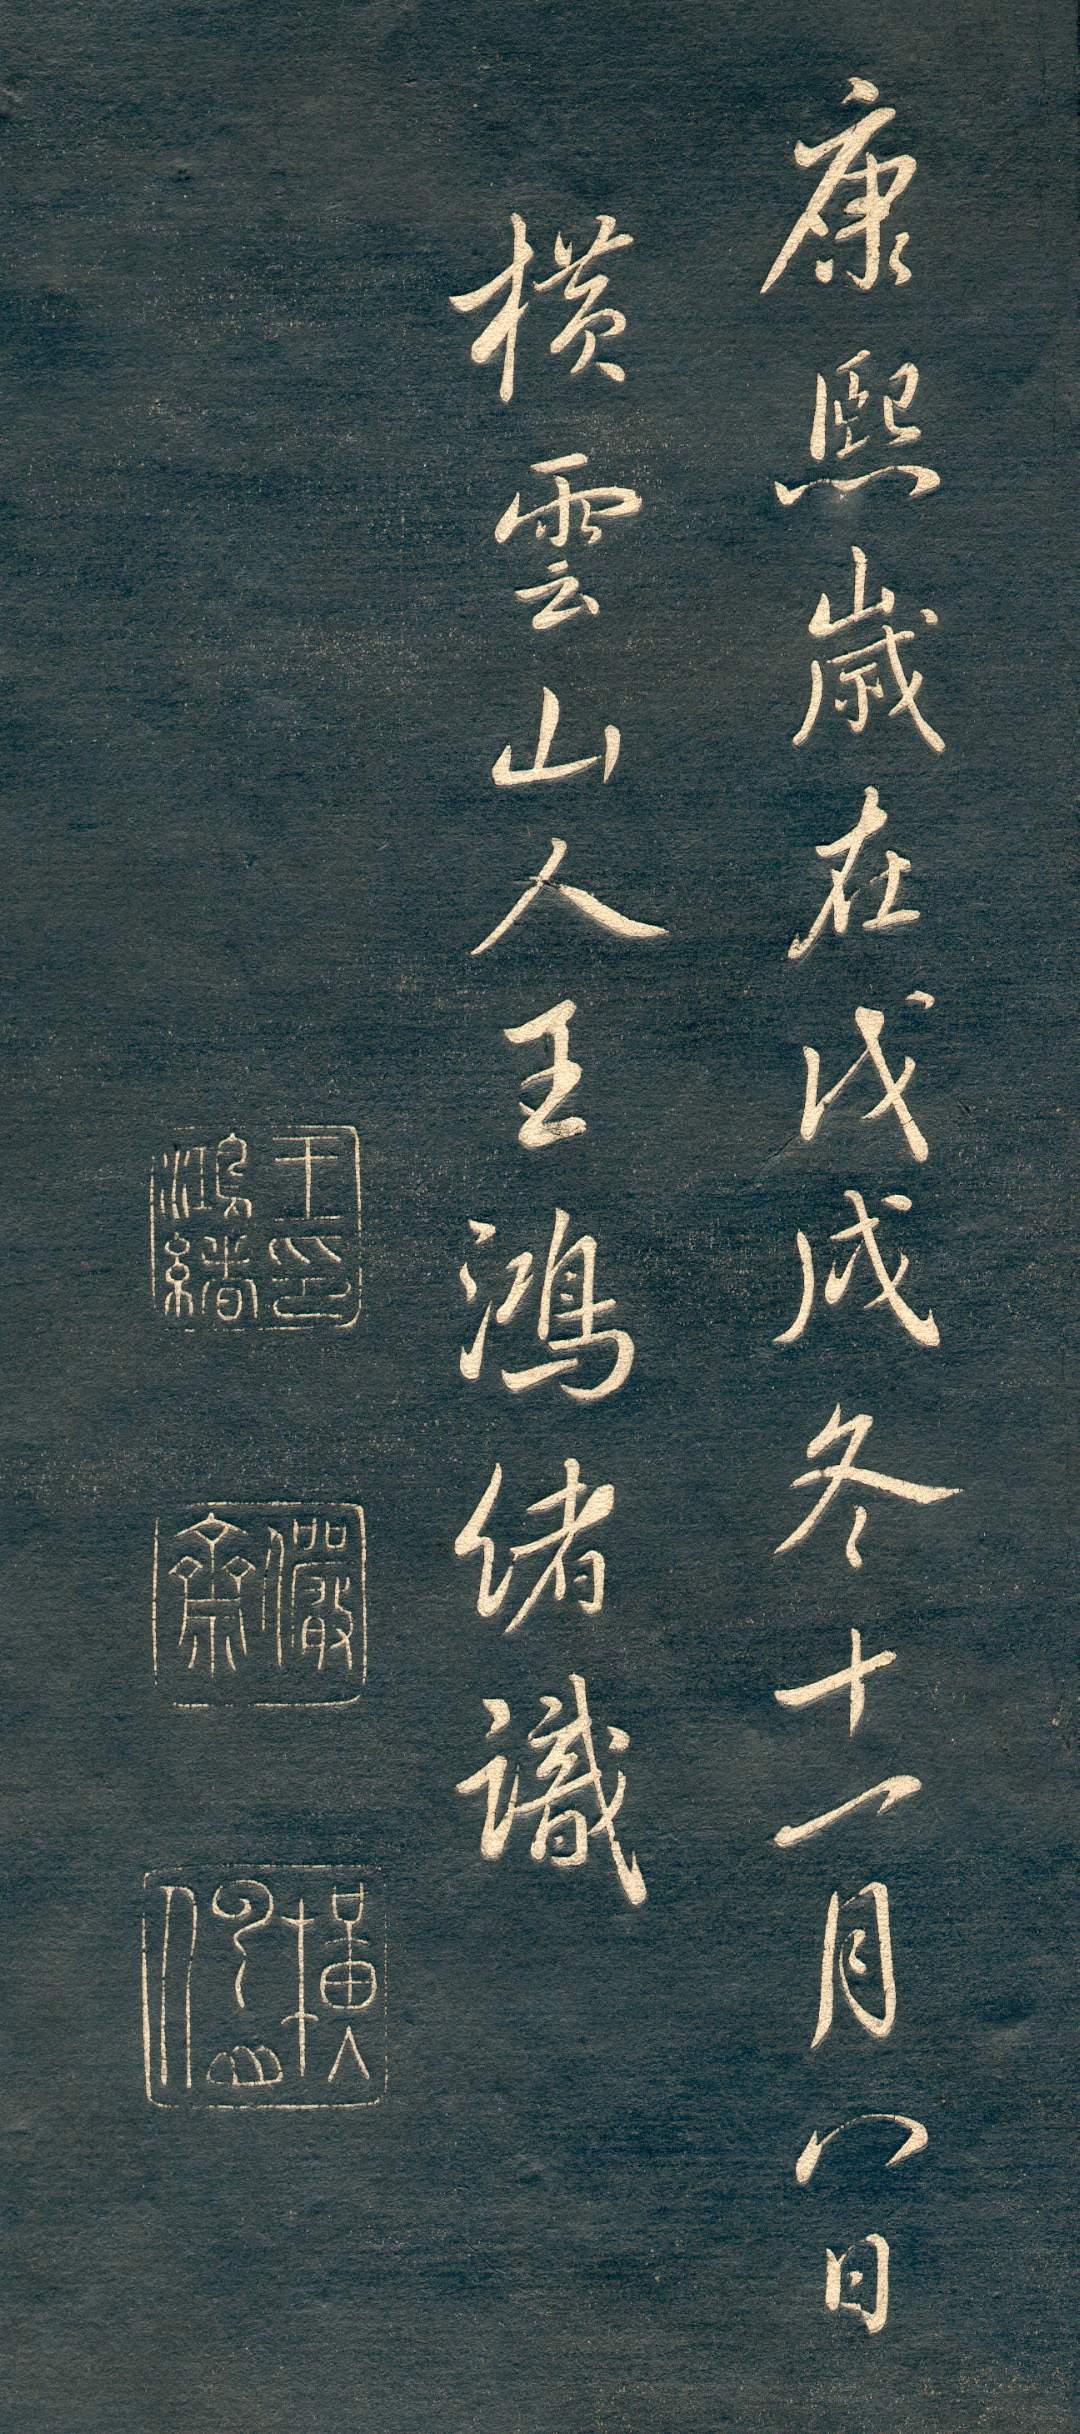 康熙歲在戊戌冬十一月八日
橫雲山人王鴻緒識
王印鴻緒
儼齋
橫雲山人